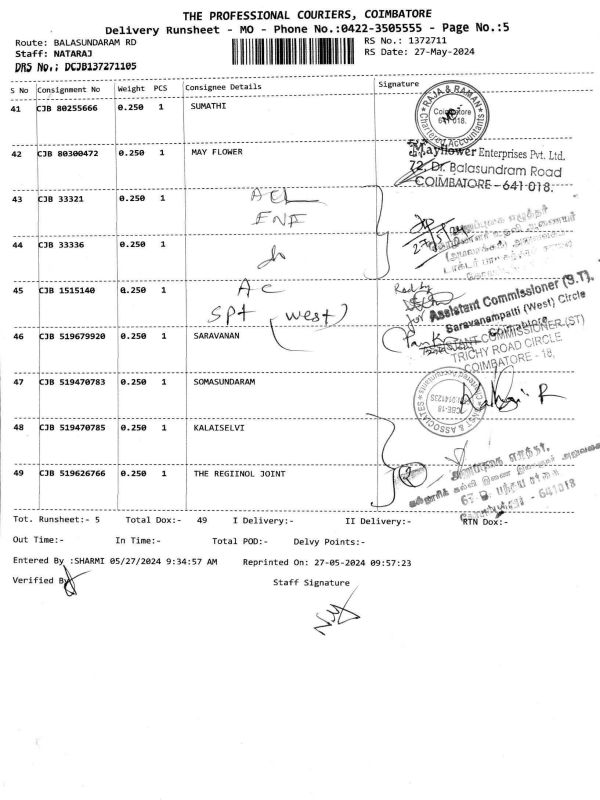 THE PROFESSIONAL COURIERS, COIMBATORE
Delivery Runsheet - MO - Phone No.:0422-3505555 - Page No.:5
Route: BALASUNDARAM RD
RS No.: 1372711
Staff: NATARAJ
RS Date: 27-May-2024
DRS No.: DCJB137271105
S No Consignment No Weight PCS Consignee Details Signature
41 CJB 80255666 0.250 1 SUMATHI
RAJA & RAMAN
Coimbatore
641 018.
Chartered Accountants
42 CJB 80300472 0.250 1 MAY FLOWER
Mayflower Enterprises Pvt. Ltd.
72, Dr. Balasundram Road
COIMBATORE - 641 018.
43 CJB 33321 0.250 1
44 CJB 33336 0.250 1
27/5/24
45 CJB 1515140 0.250 1 AC
Spt (west)
for Assistant Commissioner (S.T),
Saravanampatti (West) Circle
Coimbatore
46 CJB 519679920 0.250 1 SARAVANAN
ASSISTANT COMMISSIONER (ST)
TRICHY ROAD CIRCLE
COIMBATORE - 18.
47 CJB 519470783 0.250 1 SOMASUNDARAM
48 CJB 519470785 0.250 1 KALAISELVI
49 CJB 519626766 0.250 1 THE REGIINOL JOINT
641018
Tot. Runsheet:- 5 Total Dox:- 49 I Delivery:- II Delivery:- RTN Dox:-
Out Time:- In Time:- Total POD:- Delvy Points:-
Entered By :SHARMI 05/27/2024 9:34:57 AM Reprinted On: 27-05-2024 09:57:23
Verified By
Staff Signature